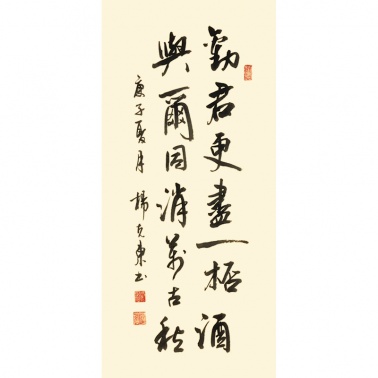 勸君更盡一桮酒
與爾同消萬古愁
庚子夏月 楊克東書